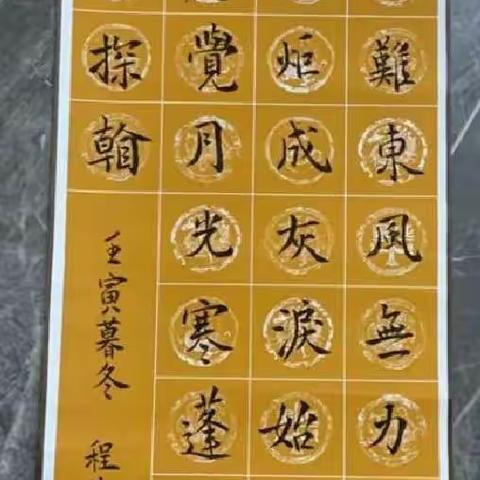 難東風無力
炬成灰淚始
覺月光寒蓬
探
壬寅暮冬 程